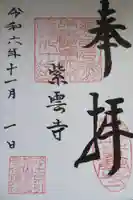 奉拝
紫雲寺
令和六年十一月一日